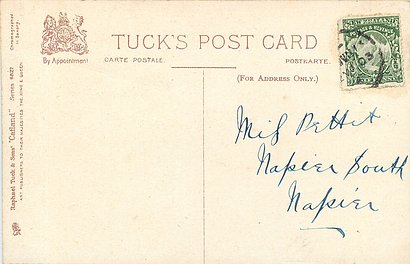 TUCK'S POST CARD
By Appointment
CARTE POSTALE.
POSTKARTE.
(FOR ADDRESS ONLY.)
NEW ZEALAND
Miss Pettit
Napier South
Napier
Raphael Tuck & Sons' "Catland" Series
ART PUBLISHERS TO THEIR MAJESTIES THE KING & QUEEN.
Chromographed in Saxony.